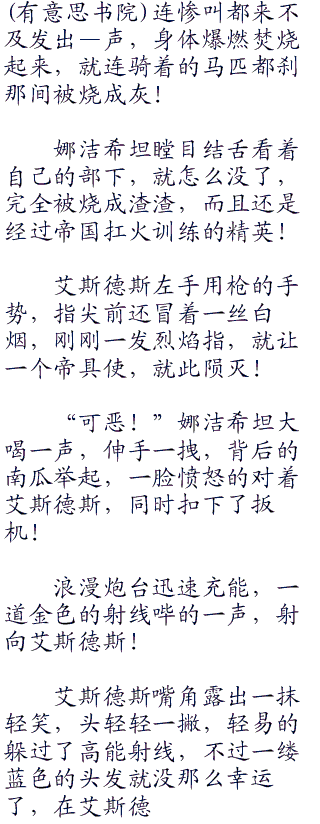 (有意思书院)连惨叫都来不
及发出一声，身体爆燃焚烧
起来，就连骑着的马匹都刹
那间被烧成灰！
娜洁希坦瞠目结舌看着
自己的部下，就怎么没了，
完全被烧成渣渣，而且还是
经过帝国扛火训练的精英！
艾斯德斯左手用枪的手
势，指尖前还冒着一丝白
烟，刚刚一发烈焰指，就让
一个帝具使，就此陨灭！
“可恶！”娜洁希坦大
喝一声，伸手一拽，背后的
南瓜举起，一脸愤怒的对着
艾斯德斯，同时扣下了扳
机！
浪漫炮台迅速充能，一
道金色的射线哔的一声，射
向艾斯德斯！
艾斯德斯嘴角露出一抹
轻笑，头轻轻一撇，轻易的
躲过了高能射线，不过一缕
蓝色的头发就没那么幸运
了，在艾斯德